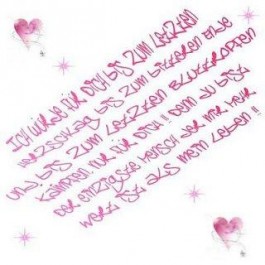 Ich würde für Dich bis zum letzten
Herzschlag bis zum bitteren Ende
und bis zum letzten Blutstropfen
kämpfen. nur für Dich!! Denn du bist
der einzigste Mensch der mir mehr
wert ist als mein Leben!!